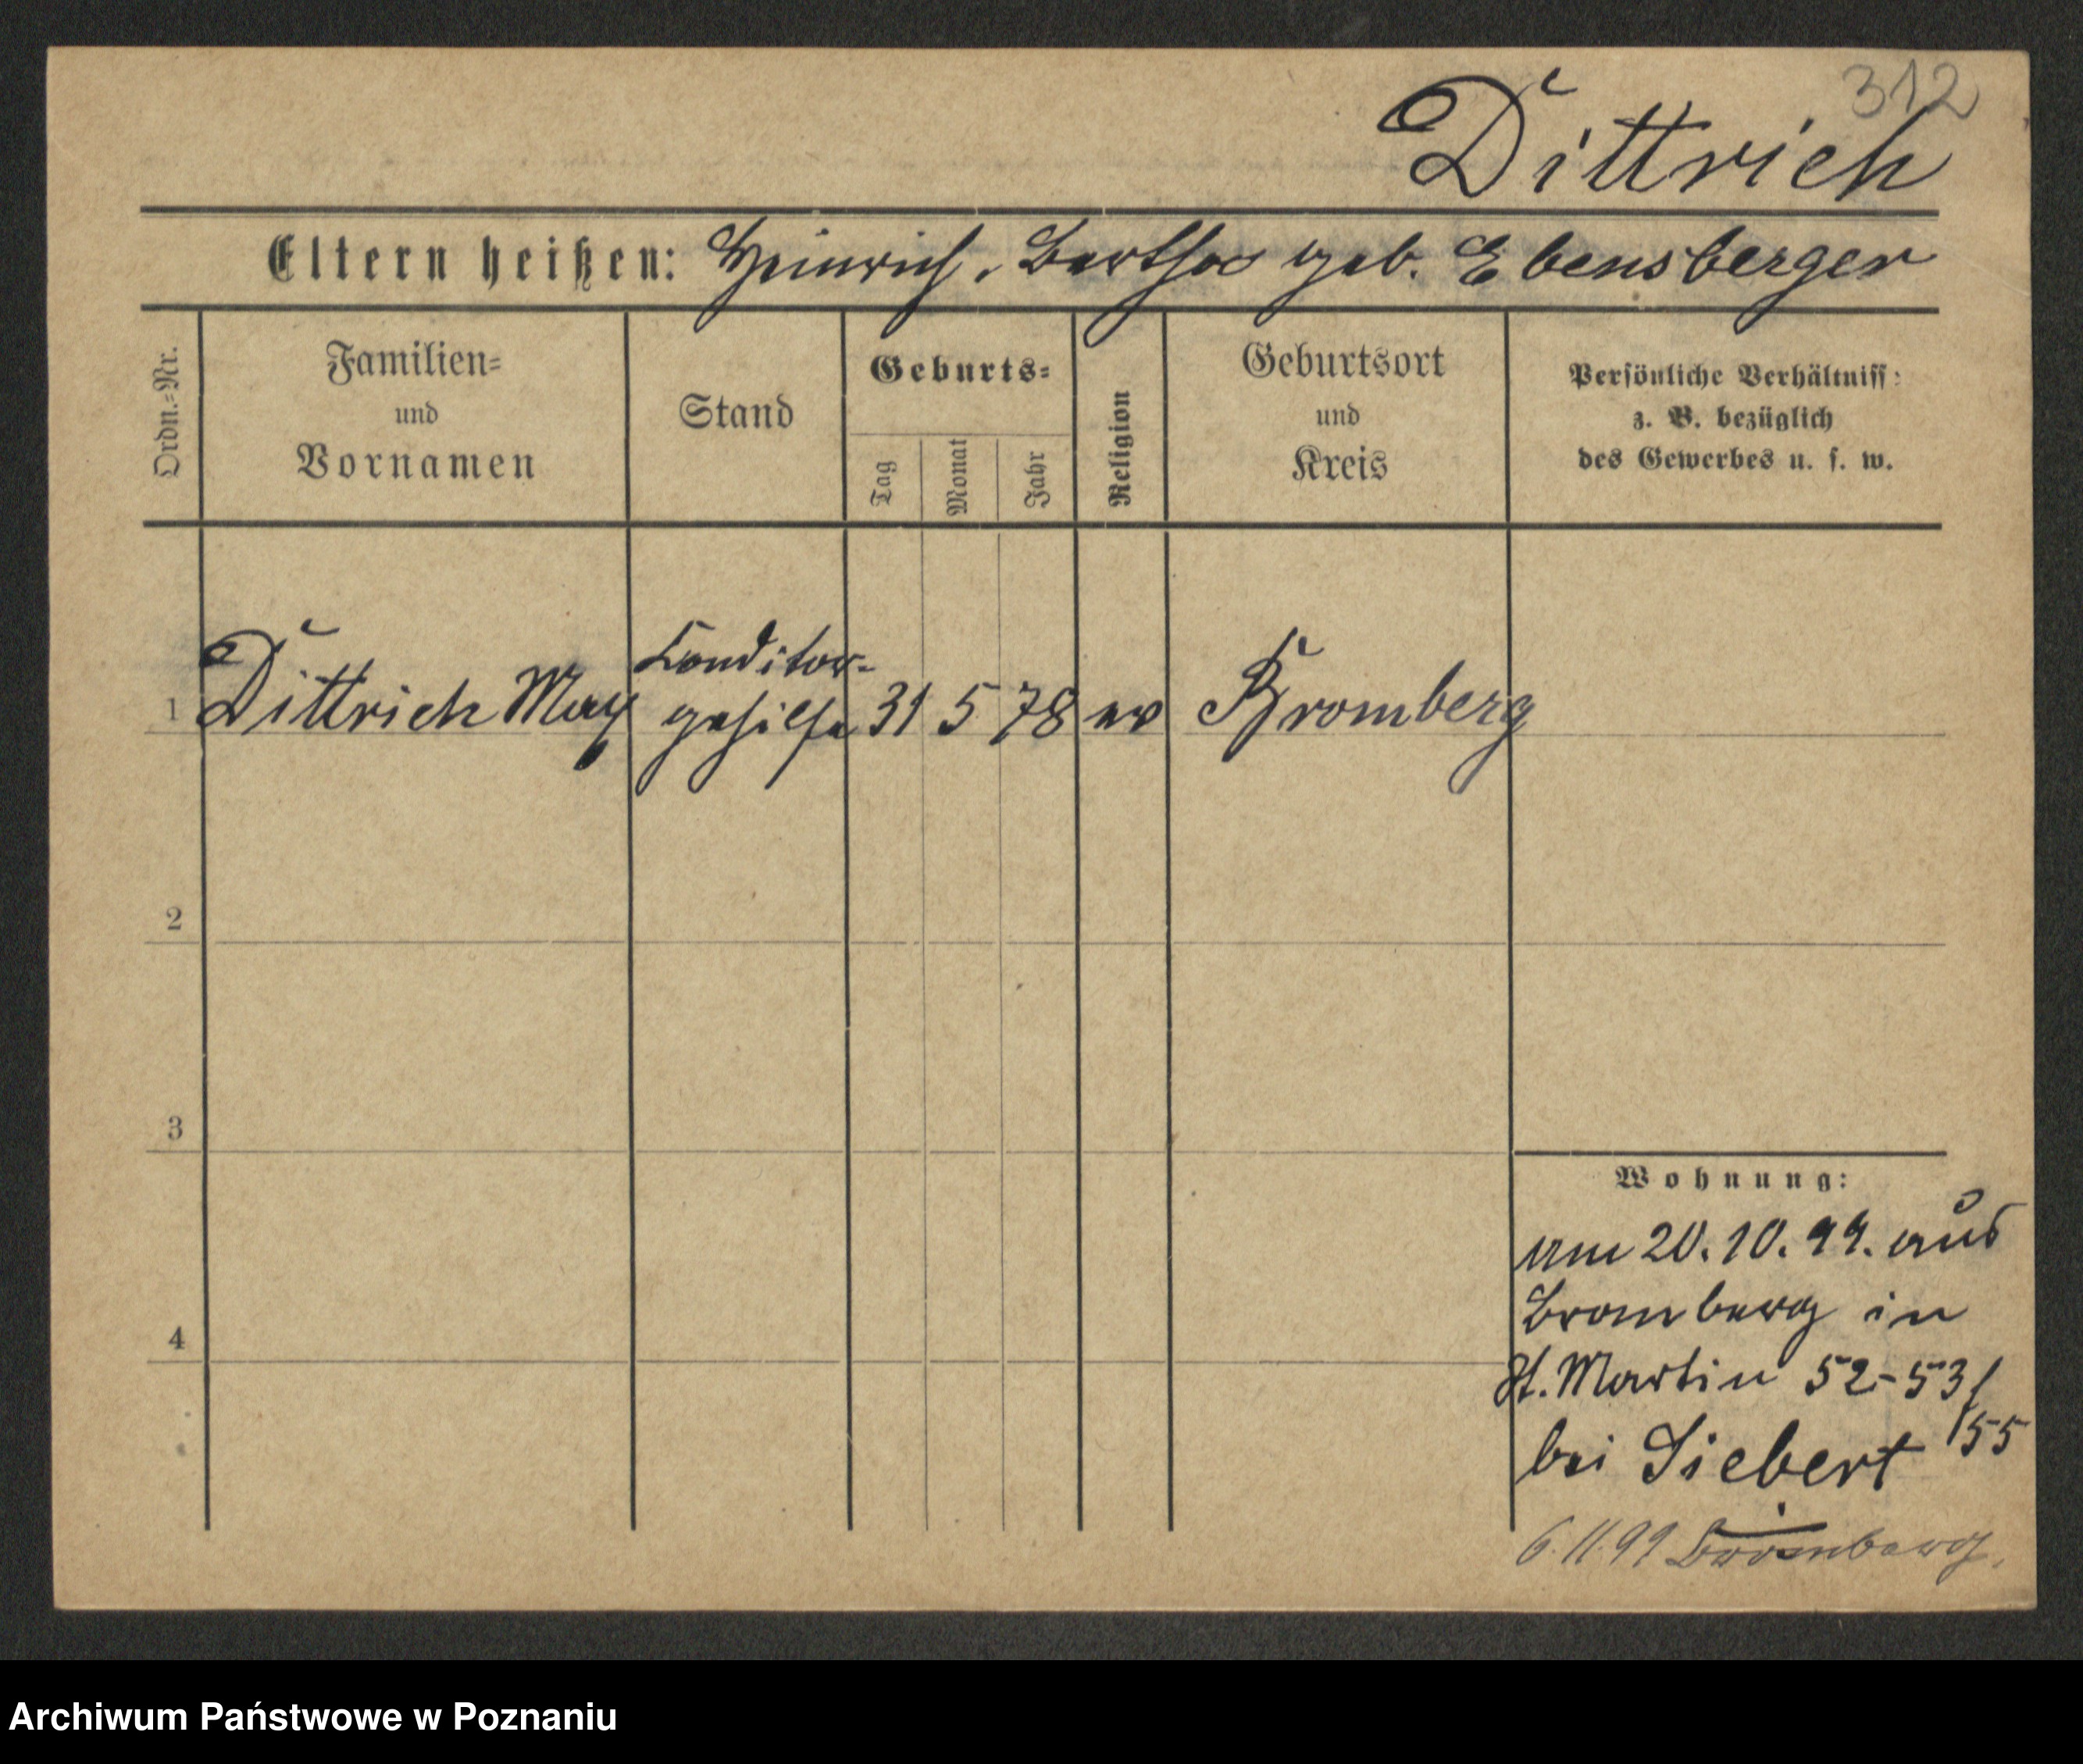 312
Dittrich
Eltern heißen: Heinrich, Bertha geb. Ebensberger
Ordn.-Nr.
Familien-
und
Vornamen
Stand
Geburts-
Tag
Monat
Jahr
Religion
Geburtsort
und
Kreis
Persönliche Verhältniss:
z. B. bezüglich
des Gewerbes u. s. w.
Conditor-
1 Dittrich Max gehilfe 31 5 78 ev Bromberg
2
3
4
Wohnung:
am 20.10.99. aus
Bromberg in
St. Martin 52-53/
bei Siebert /55
6.11.99 Bromberg.
Archiwum Państwowe w Poznaniu